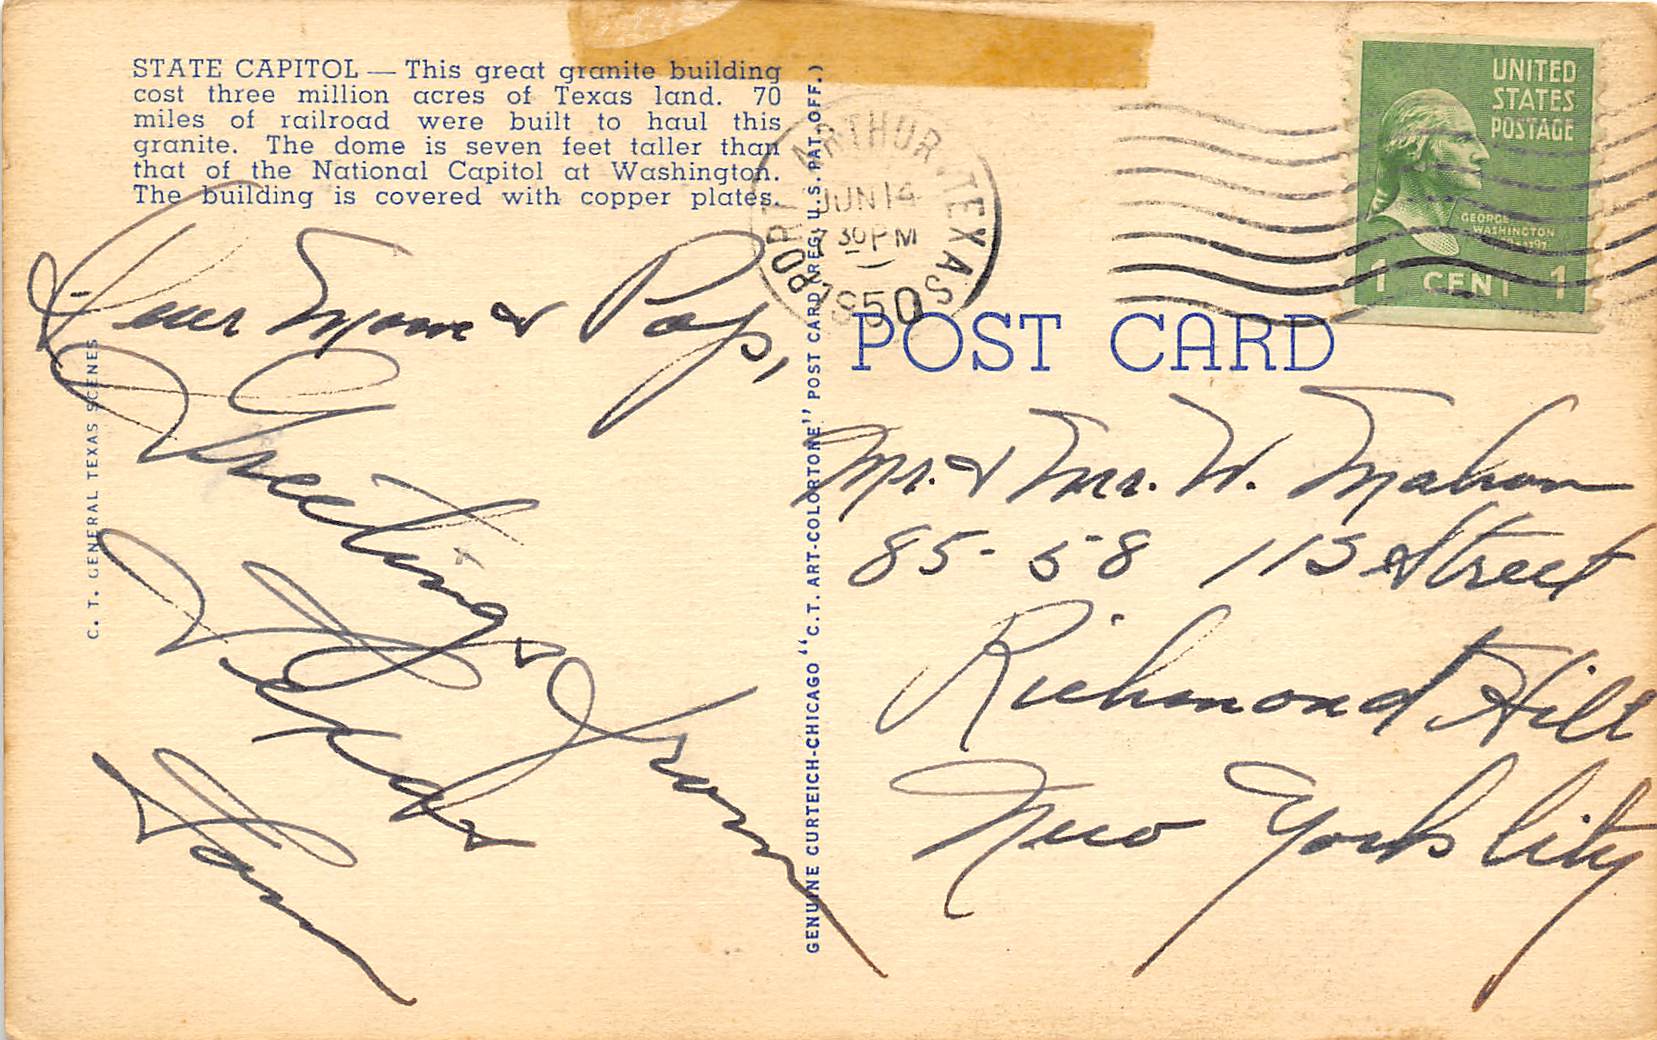 STATE CAPITOL — This great granite building
cost three million acres of Texas land. 70
miles of railroad were built to haul this
granite. The dome is seven feet taller than
that of the National Capitol at Washington.
The building is covered with copper plates.
Dear Mom & Pop,
Greetings from
Texas
Sam
C. T. GENERAL TEXAS SCENES
GENUINE CURTEICH-CHICAGO "C. T. ART-COLORTONE" POST CARD (REG. U.S. PAT. OFF.)
PORT ARTHUR, TEXAS
JUN 14
7 30 PM
1950
UNITED
STATES
POSTAGE
GEORGE
WASHINGTON
1 CENT 1
POST CARD
Mr. & Mrs. W. Mahon
85-58 115 Street
Richmond Hill
New York City